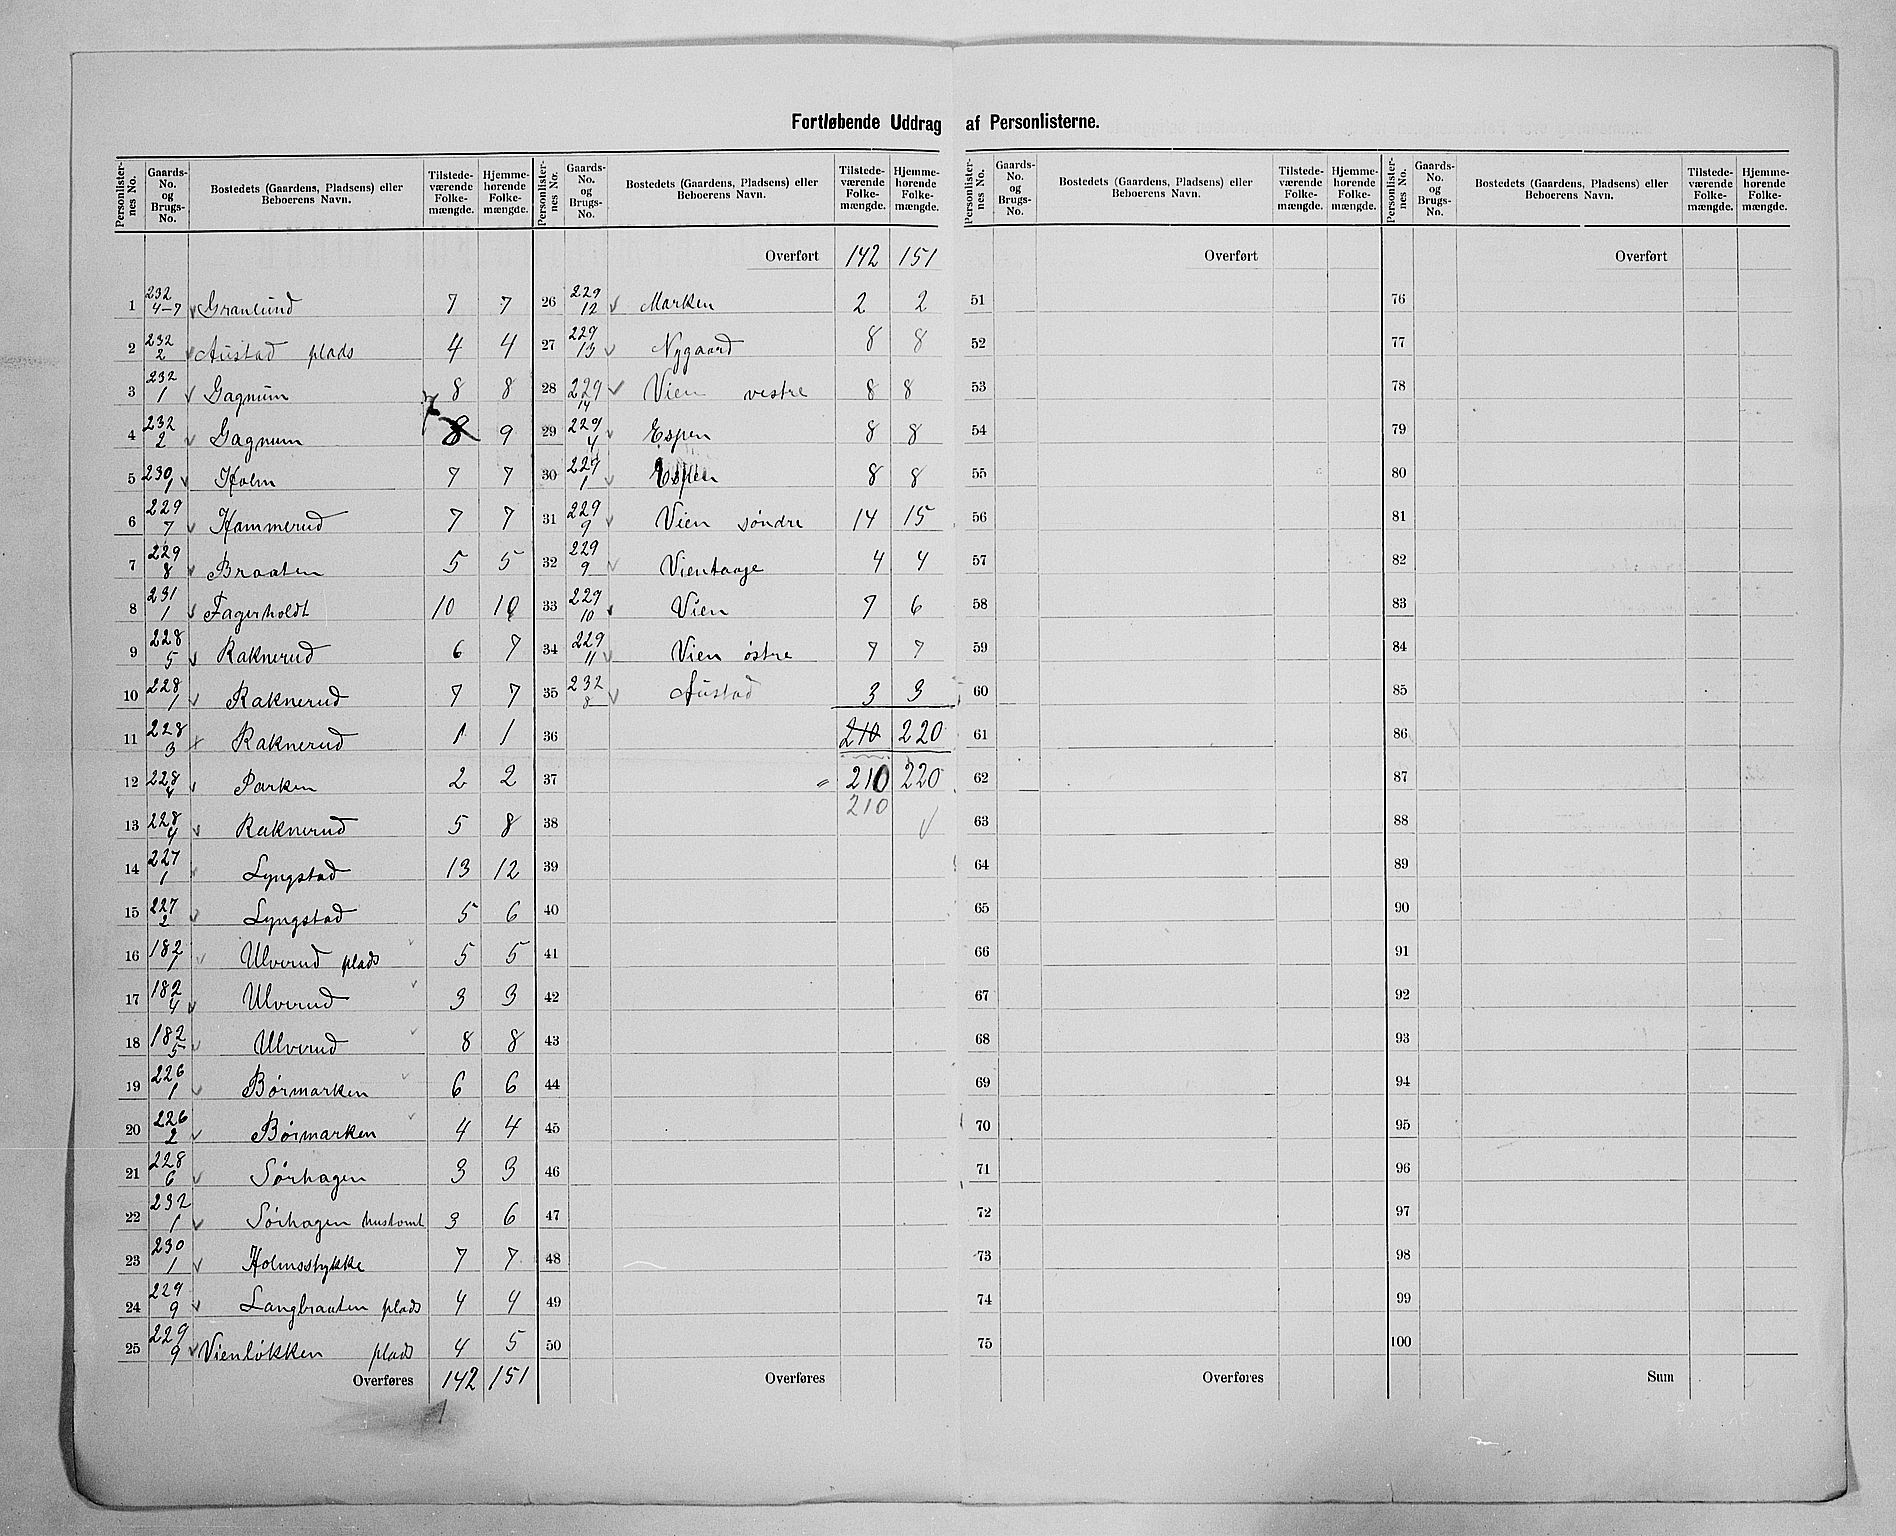 Fortløbende Uddrag af Personlisterne.
Personlister-nes No. | Gaards-No. og Brugs-No. | Bostedets (Gaardens, Pladsens) eller Beboerens Navn. | Tilstede-værende Folke-mængde. | Hjemme-hørende Folke-mængde.
1 232 4-7 Granlund 7 7
2 232 2 Austad plads 4 4
3 232 1 Gagnum 8 8
4 232 2 Gagnum 8 7 9
5 230 1 Holm 7 7
6 229 7 Hammerud 7 7
7 229 8 Braaten 5 5
8 231 1 Fagerholdt 10 10
9 228 5 Raknerud 6 7
10 228 1 Raknerud 7 7
11 228 3 Raknerud 1 1
12 228 Parken 2 2
13 228 4 Raknerud 5 8
14 227 1 Lyngstad 13 12
15 227 2 Lyngstad 5 6
16 182 1 Ulverud plads 5 5
17 182 4 Ulverud 3 3
18 182 5 Ulverud 8 8
19 226 1 Børmarken 6 6
20 226 2 Børmarken 4 4
21 228 6 Sørhagen 3 3
22 232 1 Sørhagen hustomt 3 6
23 230 1 Holmsstykke 7 7
24 229 9 Langbraaten plads 4 4
25 229 9 Vienløkken plads 4 5
Overføres 142 151
Personlister-nes No. | Gaards-No. og Brugs-No. | Bostedets (Gaardens, Pladsens) eller Beboerens Navn. | Tilstede-værende Folke-mængde. | Hjemme-hørende Folke-mængde.
Overført 142 151
26 229 12 Marken 2 2
27 229 13 Nygaard 8 8
28 229 14 Vien vestre 8 8
29 229 4 Espen 8 8
30 229 1 Espen 8 8
31 229 9 Vien søndre 14 15
32 229 9 Vienhauge 4 4
33 229 10 Vien 7 6
34 229 11 Vien østre 7 7
35 232 8 Austad 3 3
36 210 220
37 " 210 220
210
38
39
40
41
42
43
44
45
46
47
48
49
50
Overføres
Personlister-nes No. | Gaards-No. og Brugs-No. | Bostedets (Gaardens, Pladsens) eller Beboerens Navn. | Tilstede-værende Folke-mængde. | Hjemme-hørende Folke-mængde.
Overført
51
52
53
54
55
56
57
58
59
60
61
62
63
64
65
66
67
68
69
70
71
72
73
74
75
Overføres
Personlister-nes No. | Gaards-No. og Brugs-No. | Bostedets (Gaardens, Pladsens) eller Beboerens Navn. | Tilstede-værende Folke-mængde. | Hjemme-hørende Folke-mængde.
Overført
76
77
78
79
80
81
82
83
84
85
86
87
88
89
90
91
92
93
94
95
96
97
98
99
100
Sum